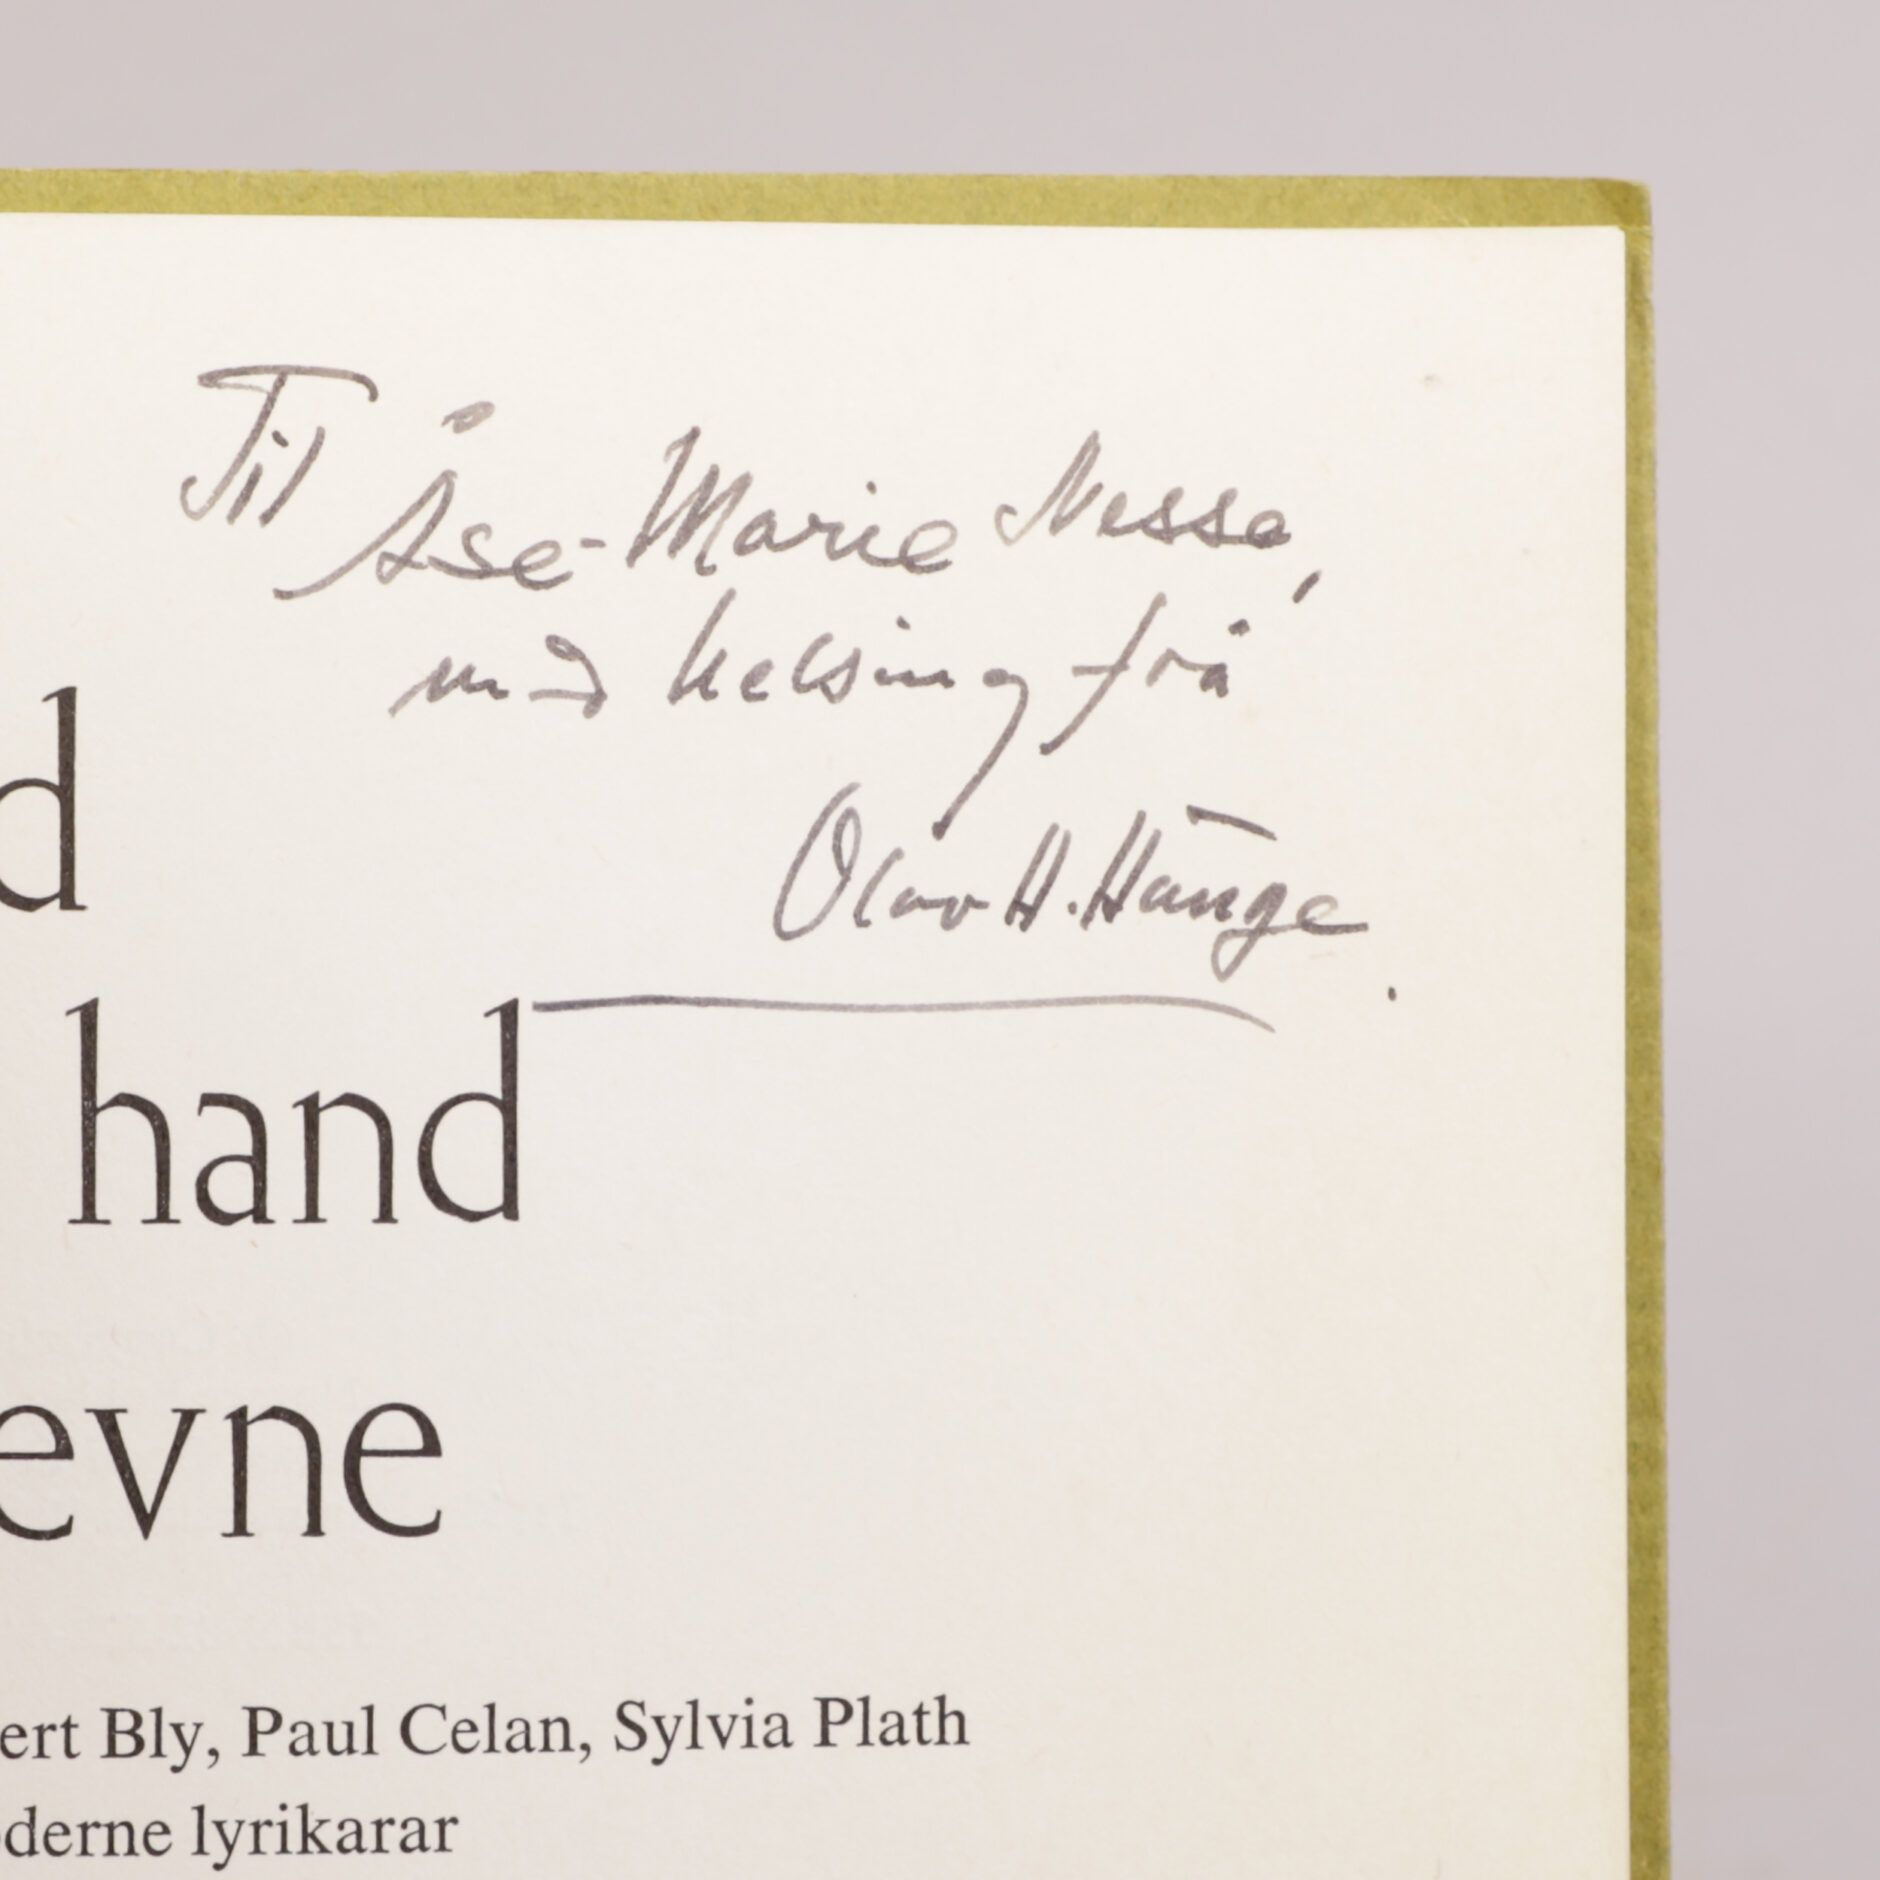 Til Åse-Marie Nesse,
med helsing frå
Olav H. Hauge
d
hand
evne
ert Bly, Paul Celan, Sylvia Plath
derne lyrikarar